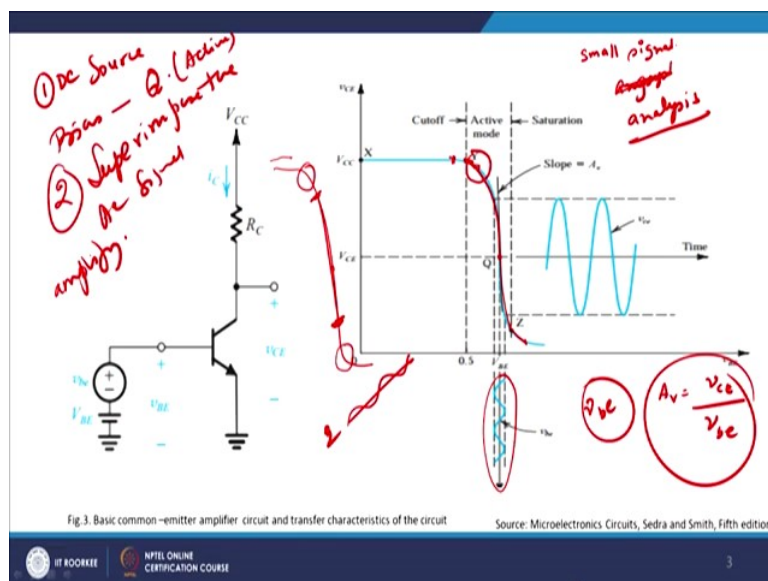 ① DC Source
Bias - Q. (Active)
② Superimpose the
AC Signal
amplify.
small signal
analysis
V_CC
i_C
R_C
v_CE
v_be
V_BE
v_BE
v_CE
Cutoff
Active
mode
Saturation
V_CC
X
Slope = A_v
v_ce
Time
V_CE
Q
Z
0.5
V_BE
v_be
v_be
A_v = v_ce / v_be
Fig.3. Basic common –emitter amplifier circuit and transfer characteristics of the circuit
Source: Microelectronics Circuits, Sedra and Smith, Fifth edition
IIT ROORKEE
NPTEL ONLINE
CERTIFICATION COURSE
3